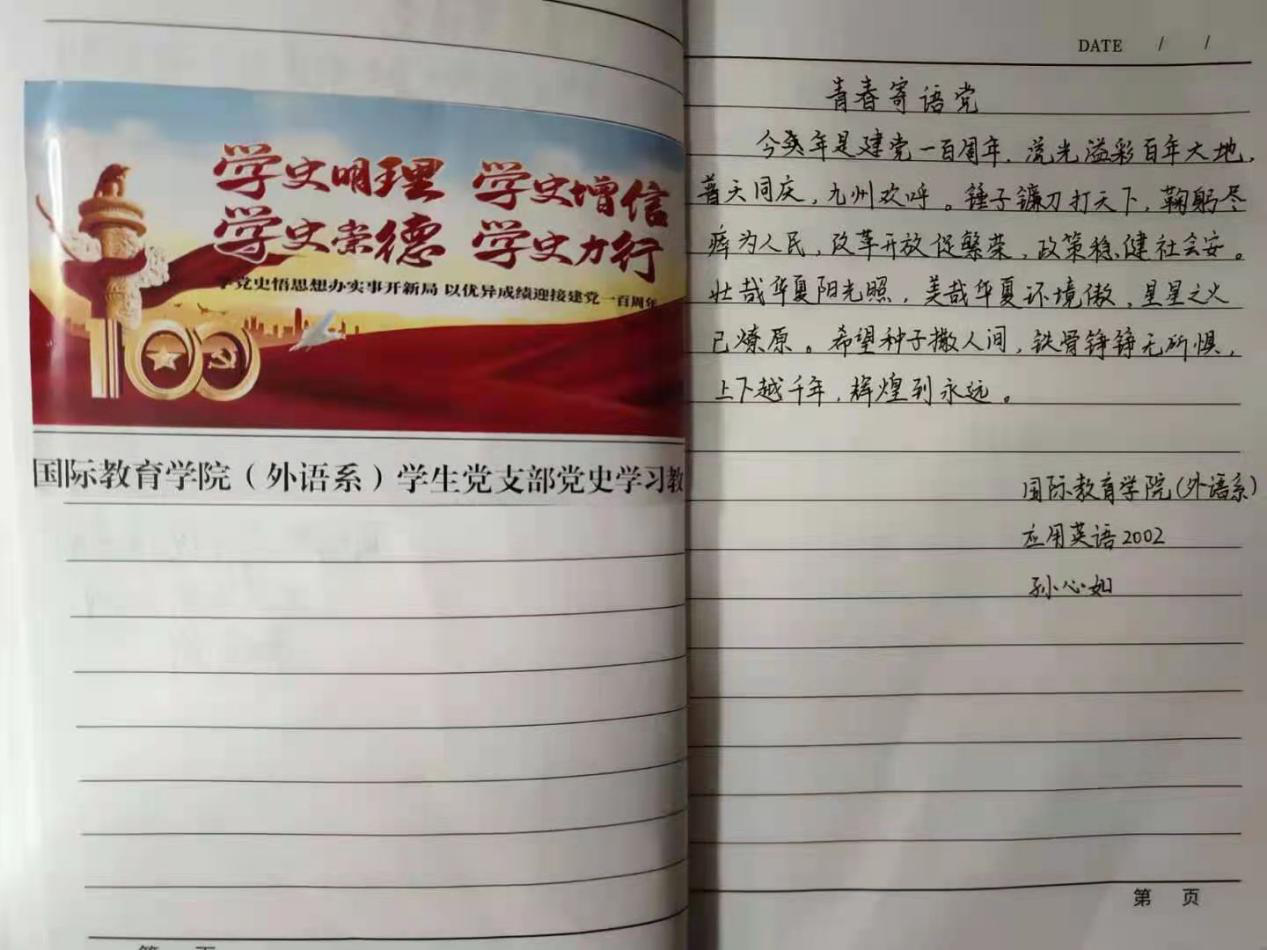 学史明理 学史增信
学史崇德 学史力行
学党史悟思想办实事开新局 以优异成绩迎接建党一百周年
100
国际教育学院（外语系）学生党支部党史学习教
第 页
DATE / /
青春寄语党
今年是建党一百周年，流光溢彩百年大地，
普天同庆，九州欢呼。锤子镰刀打天下，鞠躬尽
瘁为人民，改革开放促繁荣，政策稳健社会安。
壮哉华夏阳光照，美哉华夏环境傲，星星之火
已燎原。希望种子撒人间，铁骨铮铮无所惧，
上下越千年，辉煌到永远。
国际教育学院（外语系）
应用英语2002
孙心如
第 页